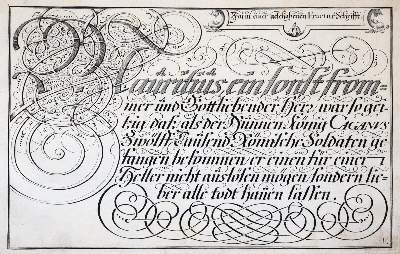 Fractur Schrifft
Mauritius, ein sonst from-
mer und Gottliebender Herr, war so gei-
tzig, daß, als der Hunnen König CIGANUS
Zwölff Tausend Römische Soldaten ge-
fangen bekommen, er einen für einen
Heller nicht auslösen mögen, sondern lie-
ber alle todt hauen lassen.